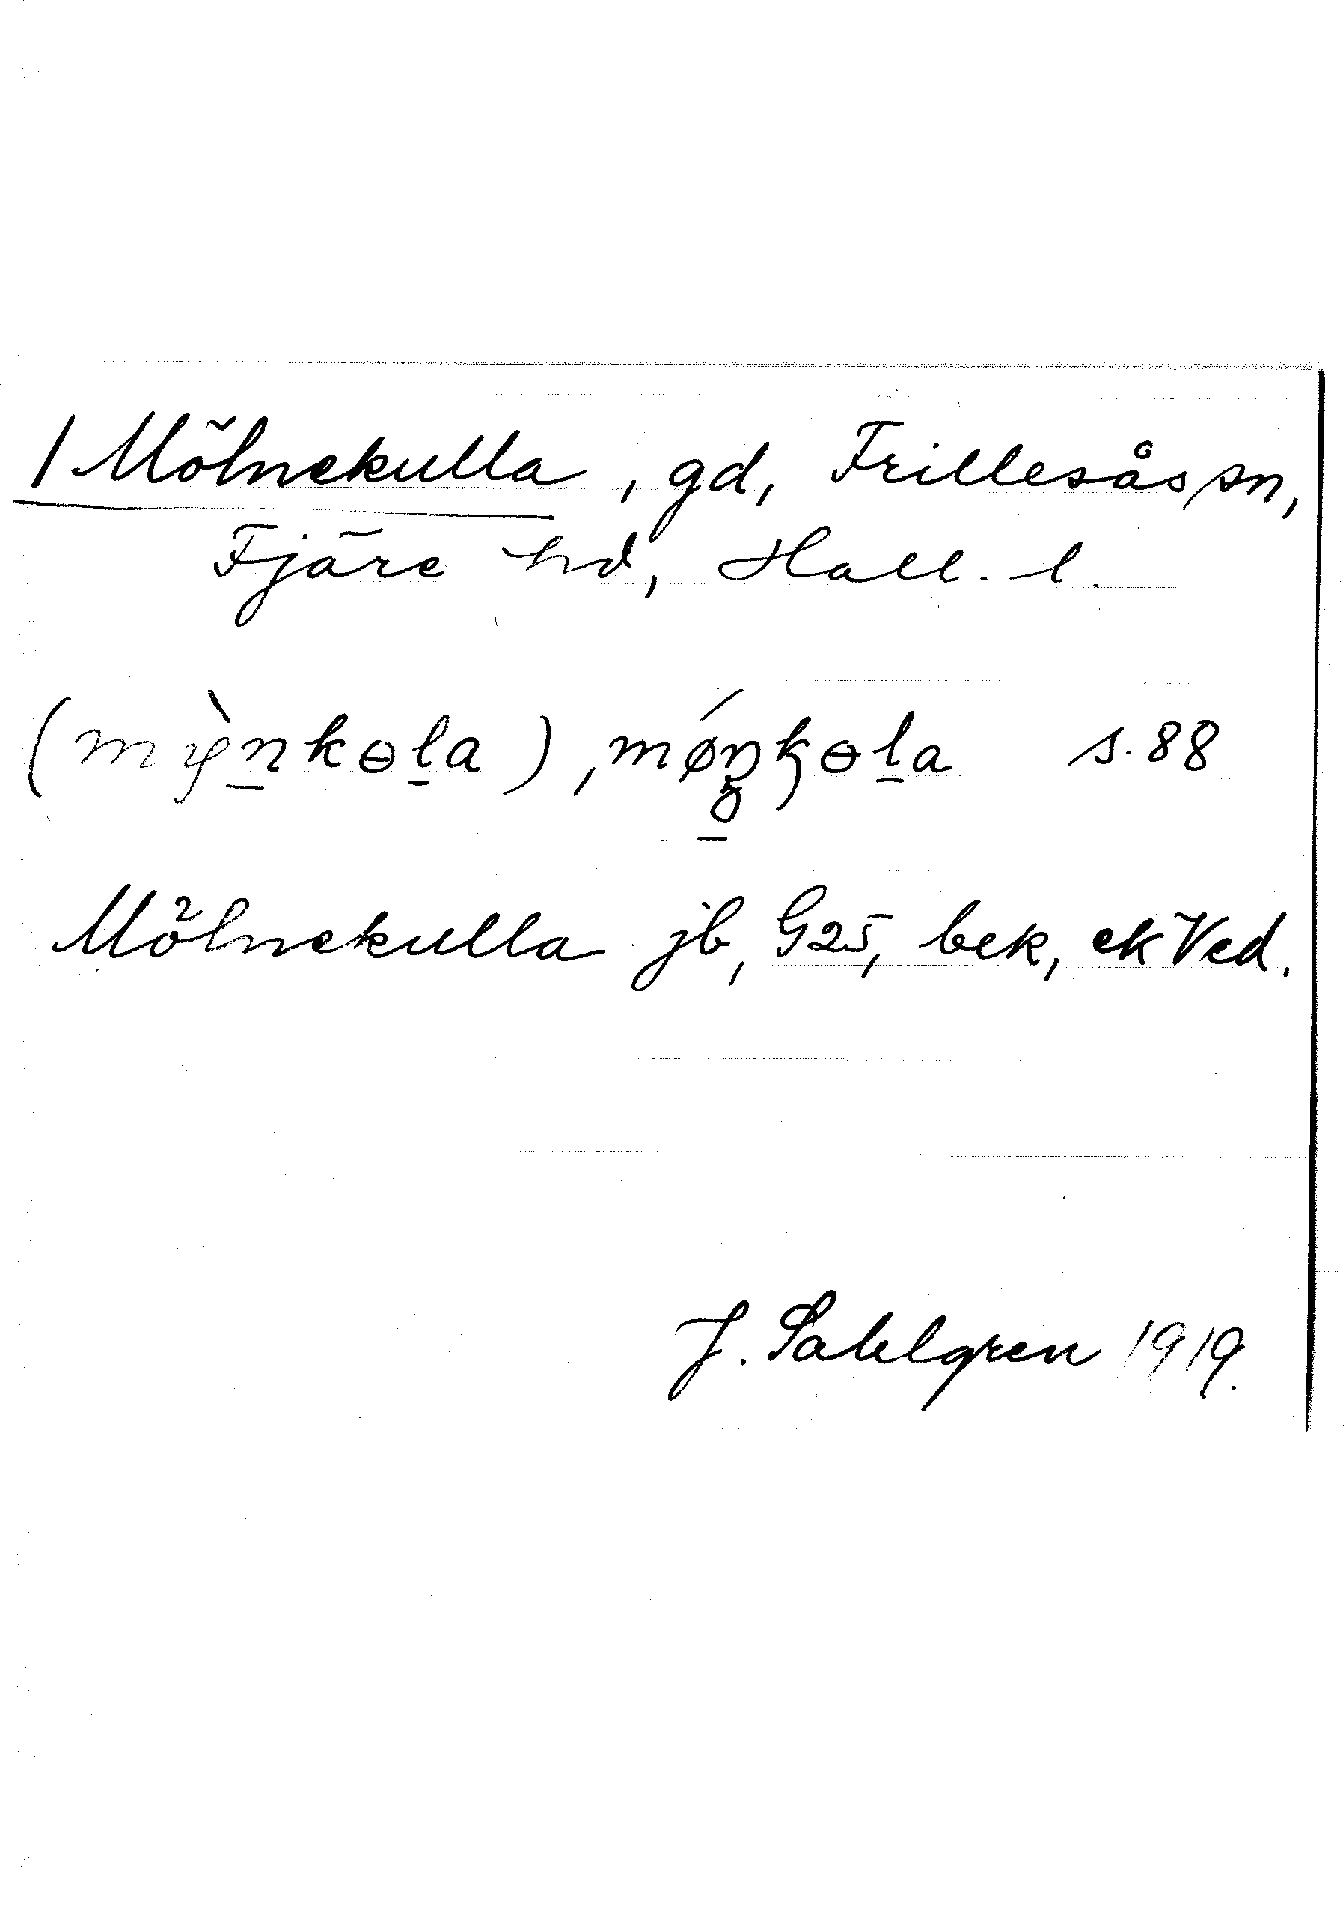 1 Mölnekulla, gd, Frillesås sn,
Fjäre hd, Hall. l.
s. 88
Mölnekulla jb, G25, bek, ek Ved.
J. Sahlgren 1919.